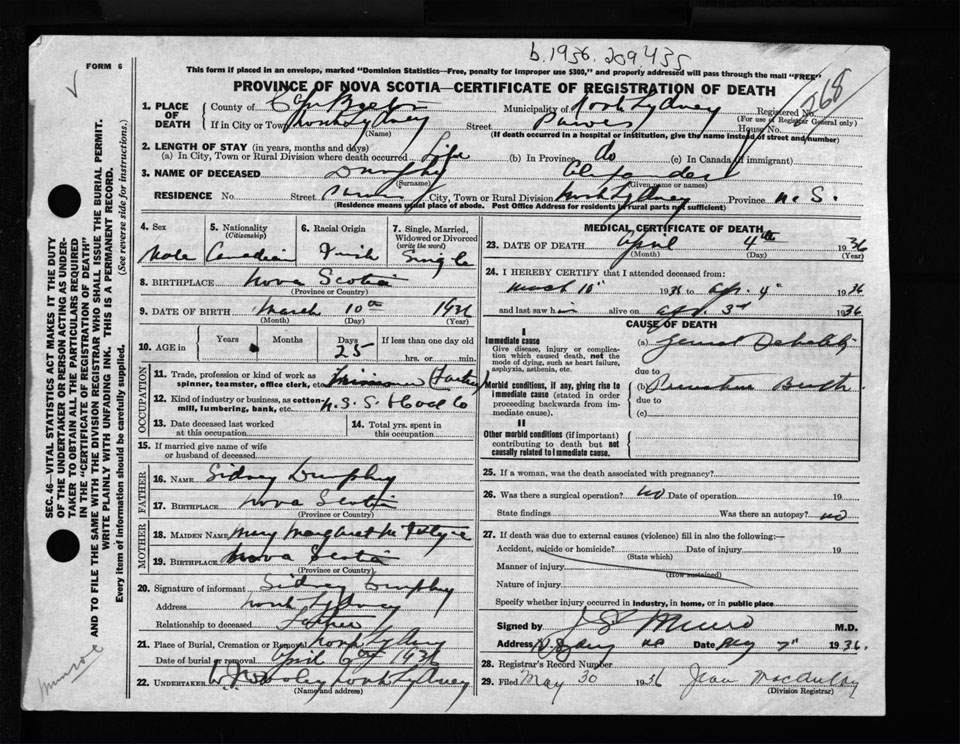 b. 1936. 209.435
FORM 6
This form if placed in an envelope, marked "Dominion Statistics—Free, penalty for improper use $300," and properly addressed will pass through the mail "FREE"
PROVINCE OF NOVA SCOTIA—CERTIFICATE OF REGISTRATION OF DEATH
1. PLACE OF DEATH
County of Cape Breton Municipality of North Sydney Registered No.
(For use of Registrar General only)
If in City or Town North Sydney Street House No.
(Name) (If death occurred in a hospital or institution, give the name instead of street and number)
2. LENGTH OF STAY (in years, months and days)
(a) In City, Town or Rural Division where death occurred Life (b) In Province do (c) In Canada (if immigrant)
3. NAME OF DECEASED Dunphy
(Surname) (Given name or names)
RESIDENCE No. Street City, Town or Rural Division North Sydney Province N. S.
(Residence means usual place of abode. Post Office Address for residents in rural parts not sufficient)
4. Sex Male
5. Nationality (Citizenship) Canadian
6. Racial Origin Irish
7. Single, Married, Widowed or Divorced (write the word) Single
8. BIRTHPLACE Nova Scotia
(Province or Country)
9. DATE OF BIRTH March 10th 1936
(Month) (Day) (Year)
10. AGE in Years Months Days 25 If less than one day old
hrs. or min.
OCCUPATION
11. Trade, profession or kind of work as spinner, teamster, office clerk, etc. (Father)
12. Kind of industry or business, as cotton-mill, lumbering, bank, etc. N. S. S.
13. Date deceased last worked at this occupation
14. Total yrs. spent in this occupation
15. If married give name of wife or husband of deceased
FATHER
16. NAME Sidney Dunphy
17. BIRTHPLACE Nova Scotia
(Province or Country)
MOTHER
18. MAIDEN NAME Mary Margaret
19. BIRTHPLACE Nova Scotia
(Province or Country)
20. Signature of informant Sidney Dunphy
Address North Sydney
Relationship to deceased Father
21. Place of Burial, Cremation or Removal North Sydney
Date of burial or removal April 6th 1936
22. UNDERTAKER North Sydney
(Name and address)
MEDICAL CERTIFICATE OF DEATH
23. DATE OF DEATH April 4th 1936
(Month) (Day) (Year)
24. I HEREBY CERTIFY that I attended deceased from:
March 10" 1936 to Ap. 4" 1936
and last saw him alive on Ap. 3rd 1936
CAUSE OF DEATH
I
Immediate cause
Give disease, injury or complication which caused death, not the mode of dying, such as heart failure, asphyxia, asthenia, etc.
(a) General Debility
due to
Morbid conditions, if any, giving rise to immediate cause (stated in order proceeding backwards from immediate cause).
(b) Premature Birth
due to
(c)
II
Other morbid conditions (if important) contributing to death but not causally related to immediate cause.
25. If a woman, was the death associated with pregnancy?
26. Was there a surgical operation? no Date of operation 19
State findings Was there an autopsy? no
27. If death was due to external causes (violence) fill in also the following:—
Accident, suicide or homicide? Date of injury 19
(State which)
Manner of injury
(How sustained)
Nature of injury
Specify whether injury occurred in industry, in home, or in public place
Signed by Munro M.D.
Address Date May 7" 1936.
28. Registrar's Record Number
29. Filed May 30 1936 Jean MacAulay
(Division Registrar)
SEC. 46—VITAL STATISTICS ACT MAKES IT THE DUTY
OF THE UNDERTAKER OR PERSON ACTING AS UNDER-
TAKER TO OBTAIN ALL THE PARTICULARS REQUIRED
IN THE "CERTIFICATE OF REGISTRATION OF DEATH"
AND TO FILE THE SAME WITH THE DIVISION REGISTRAR WHO SHALL ISSUE THE BURIAL PERMIT.
WRITE PLAINLY WITH UNFADING INK. THIS IS A PERMANENT RECORD.
Every item of information should be carefully supplied. (See reverse side for instructions.)
Munroe